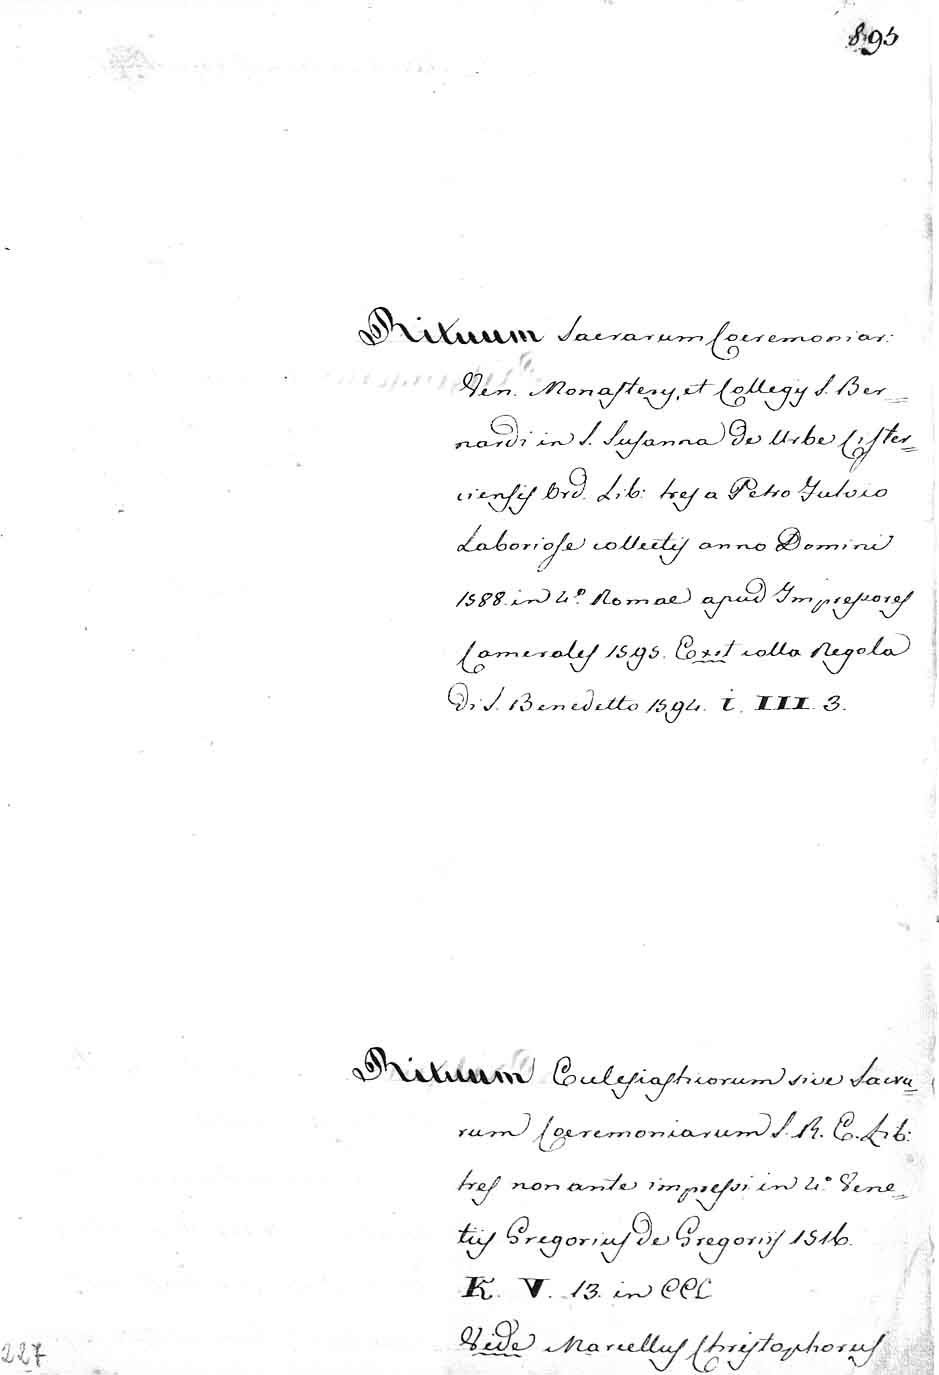 895
Rituum Sacrarum Coeremoniar:
Ven. Monasterÿ, et Collegÿ S. Ber=
nardi in S. Susanna de Urbe Cister=
ciensis Ord. Lib: tres a Petro Fulvio
Laboriose collectis anno Domini
1588. in 4.º Romae apud Impressores
Camerales 1595. Exit colla Regola
di S. Benedetto 1594. i. III. 3.
Rituum Eclesiasticorum sive Sacra=
rum Coeremoniarum S. R. E. Lib:
tres non ante impressi in 4.º Vene=
tiis Gregorius de Gregoriis 1516.
K. V. 13. in CCL
Vide Marcellus Christophorus
227